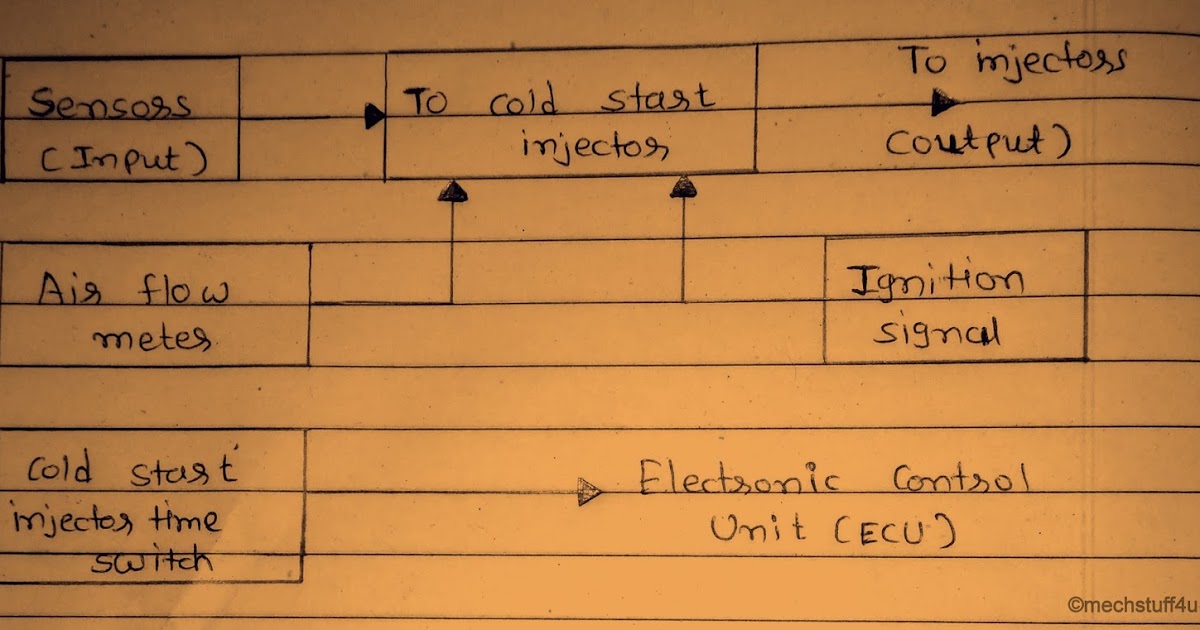 Sensors
(Input)
To cold start
injector
To injectors
(output)
Air flow
meter
Ignition
signal
Cold start
injector time
switch
Electronic Control
Unit (ECU)
©mechstuff4u